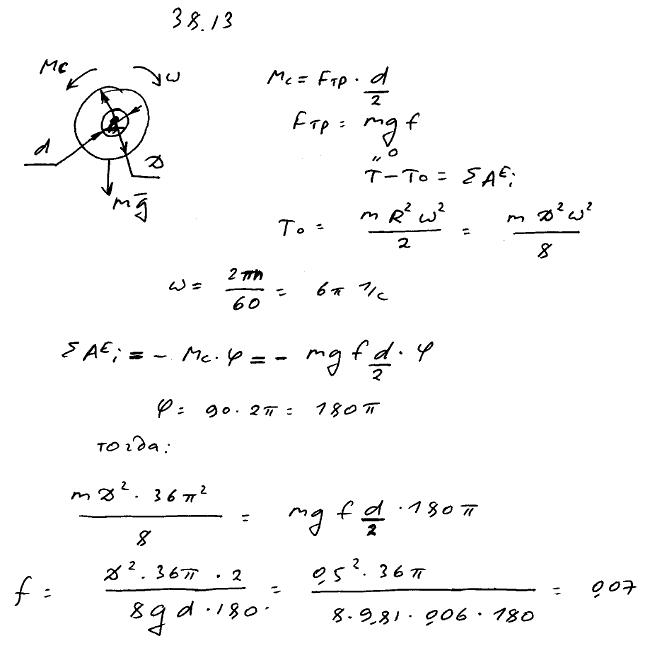 38.13
Mc ω
d D
mg̅
Mc = Fтр · d/2
Fтр = mgf
"0
T - T₀ = ΣAᴱᵢ
T₀ = mR²ω²/2 = mD²ω²/8
ω = 2πn/60 = 6π 1/c
ΣAᴱᵢ = - Mc · φ = - mgf d/2 · φ
φ = 90 · 2π = 180π
тогда:
mD² · 36π²/8 = mgf d/2 · 180π
f = D² · 36π · 2/8gd · 180· = 0,5² · 36π/8 · 9,81 · 0,06 · 180 = 0,07